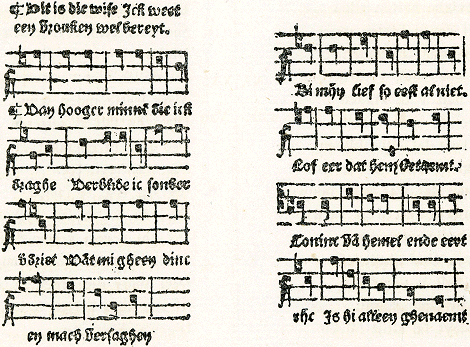 ¶ Dit is die wise Ick weet
een vrouken wel bereyt.
¶ Van hooger minne die ick
draghe Verblide ic sonder
Wāt mi gheen dinc
en mach versaghen
Bi mijn lief so eest al niet.
Lof eer dat hem betaemt.
Coninc vā hemel ende eert
Is hi alleen ghenaemt